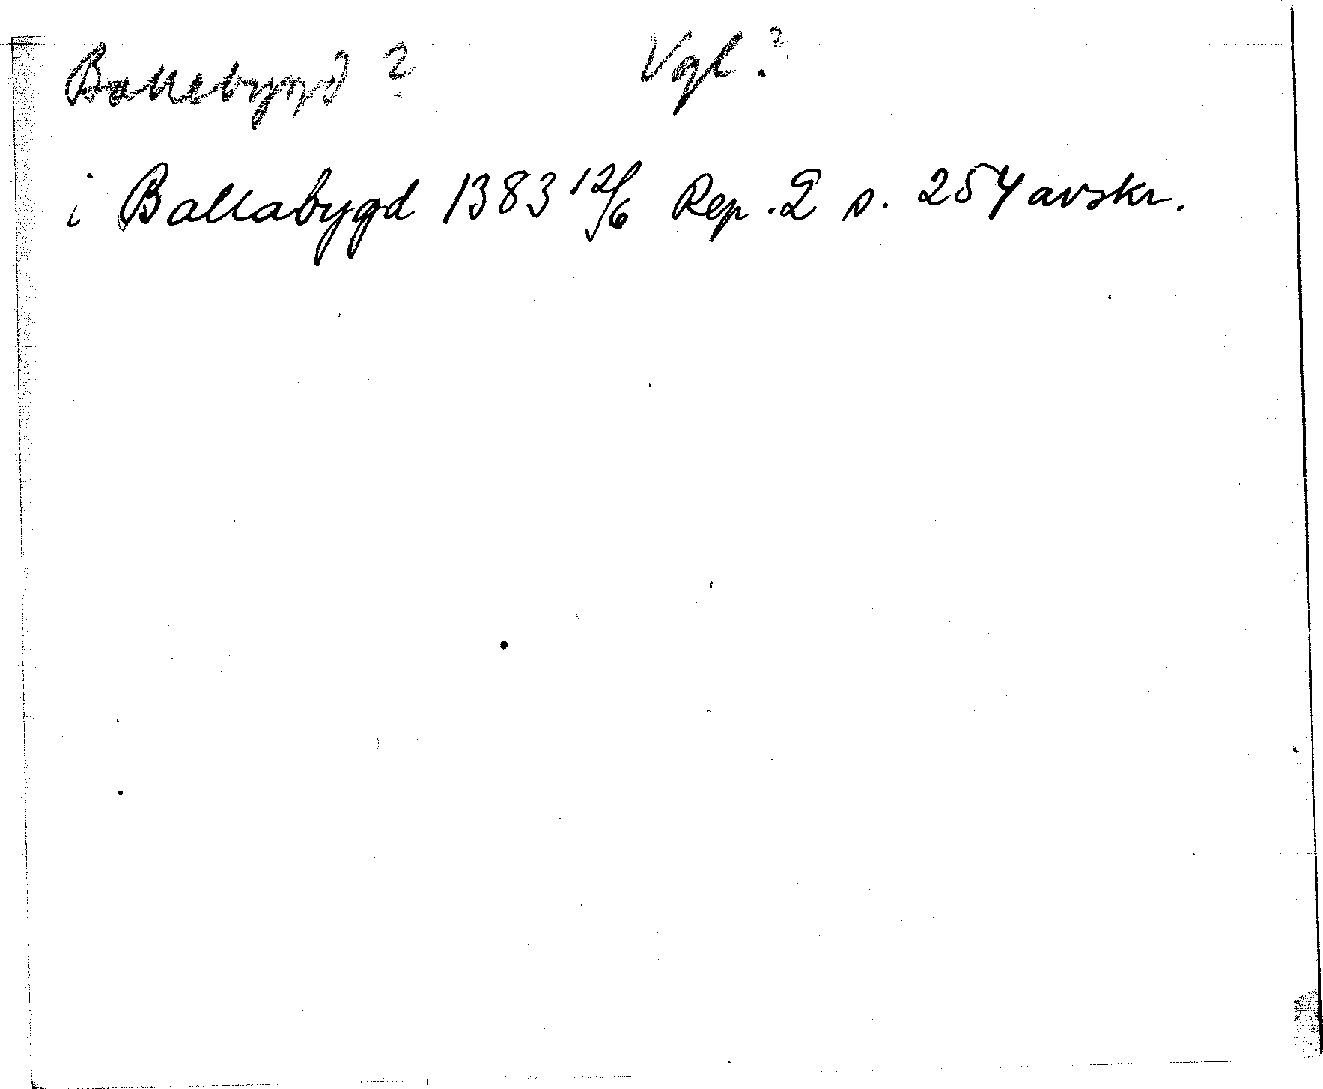 Ballebygd ? Vgl. ?
i Ballabygd 1383 12/6 Rep. 2 s. 254 avskr.